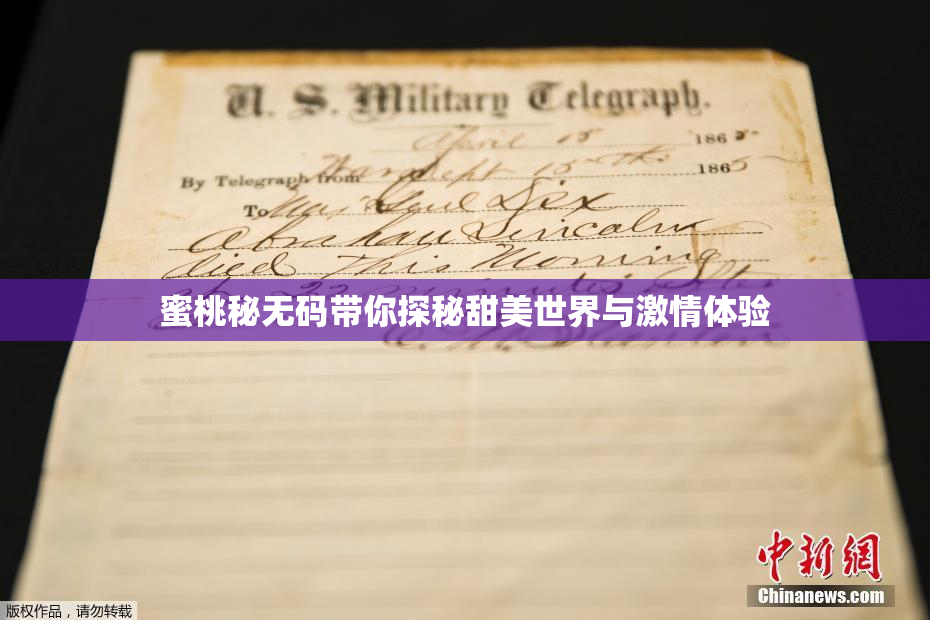 U. S. Military Telegraph.
April 15 1865
By Telegraph from War Dept 15th 1865
To Maj Genl Dix
Abraham Lincoln
died This Morning
at 22 minutes after
蜜桃秘无码带你探秘甜美世界与激情体验
E. M. Stanton
中新网
Chinanews.com
版权作品，请勿转载